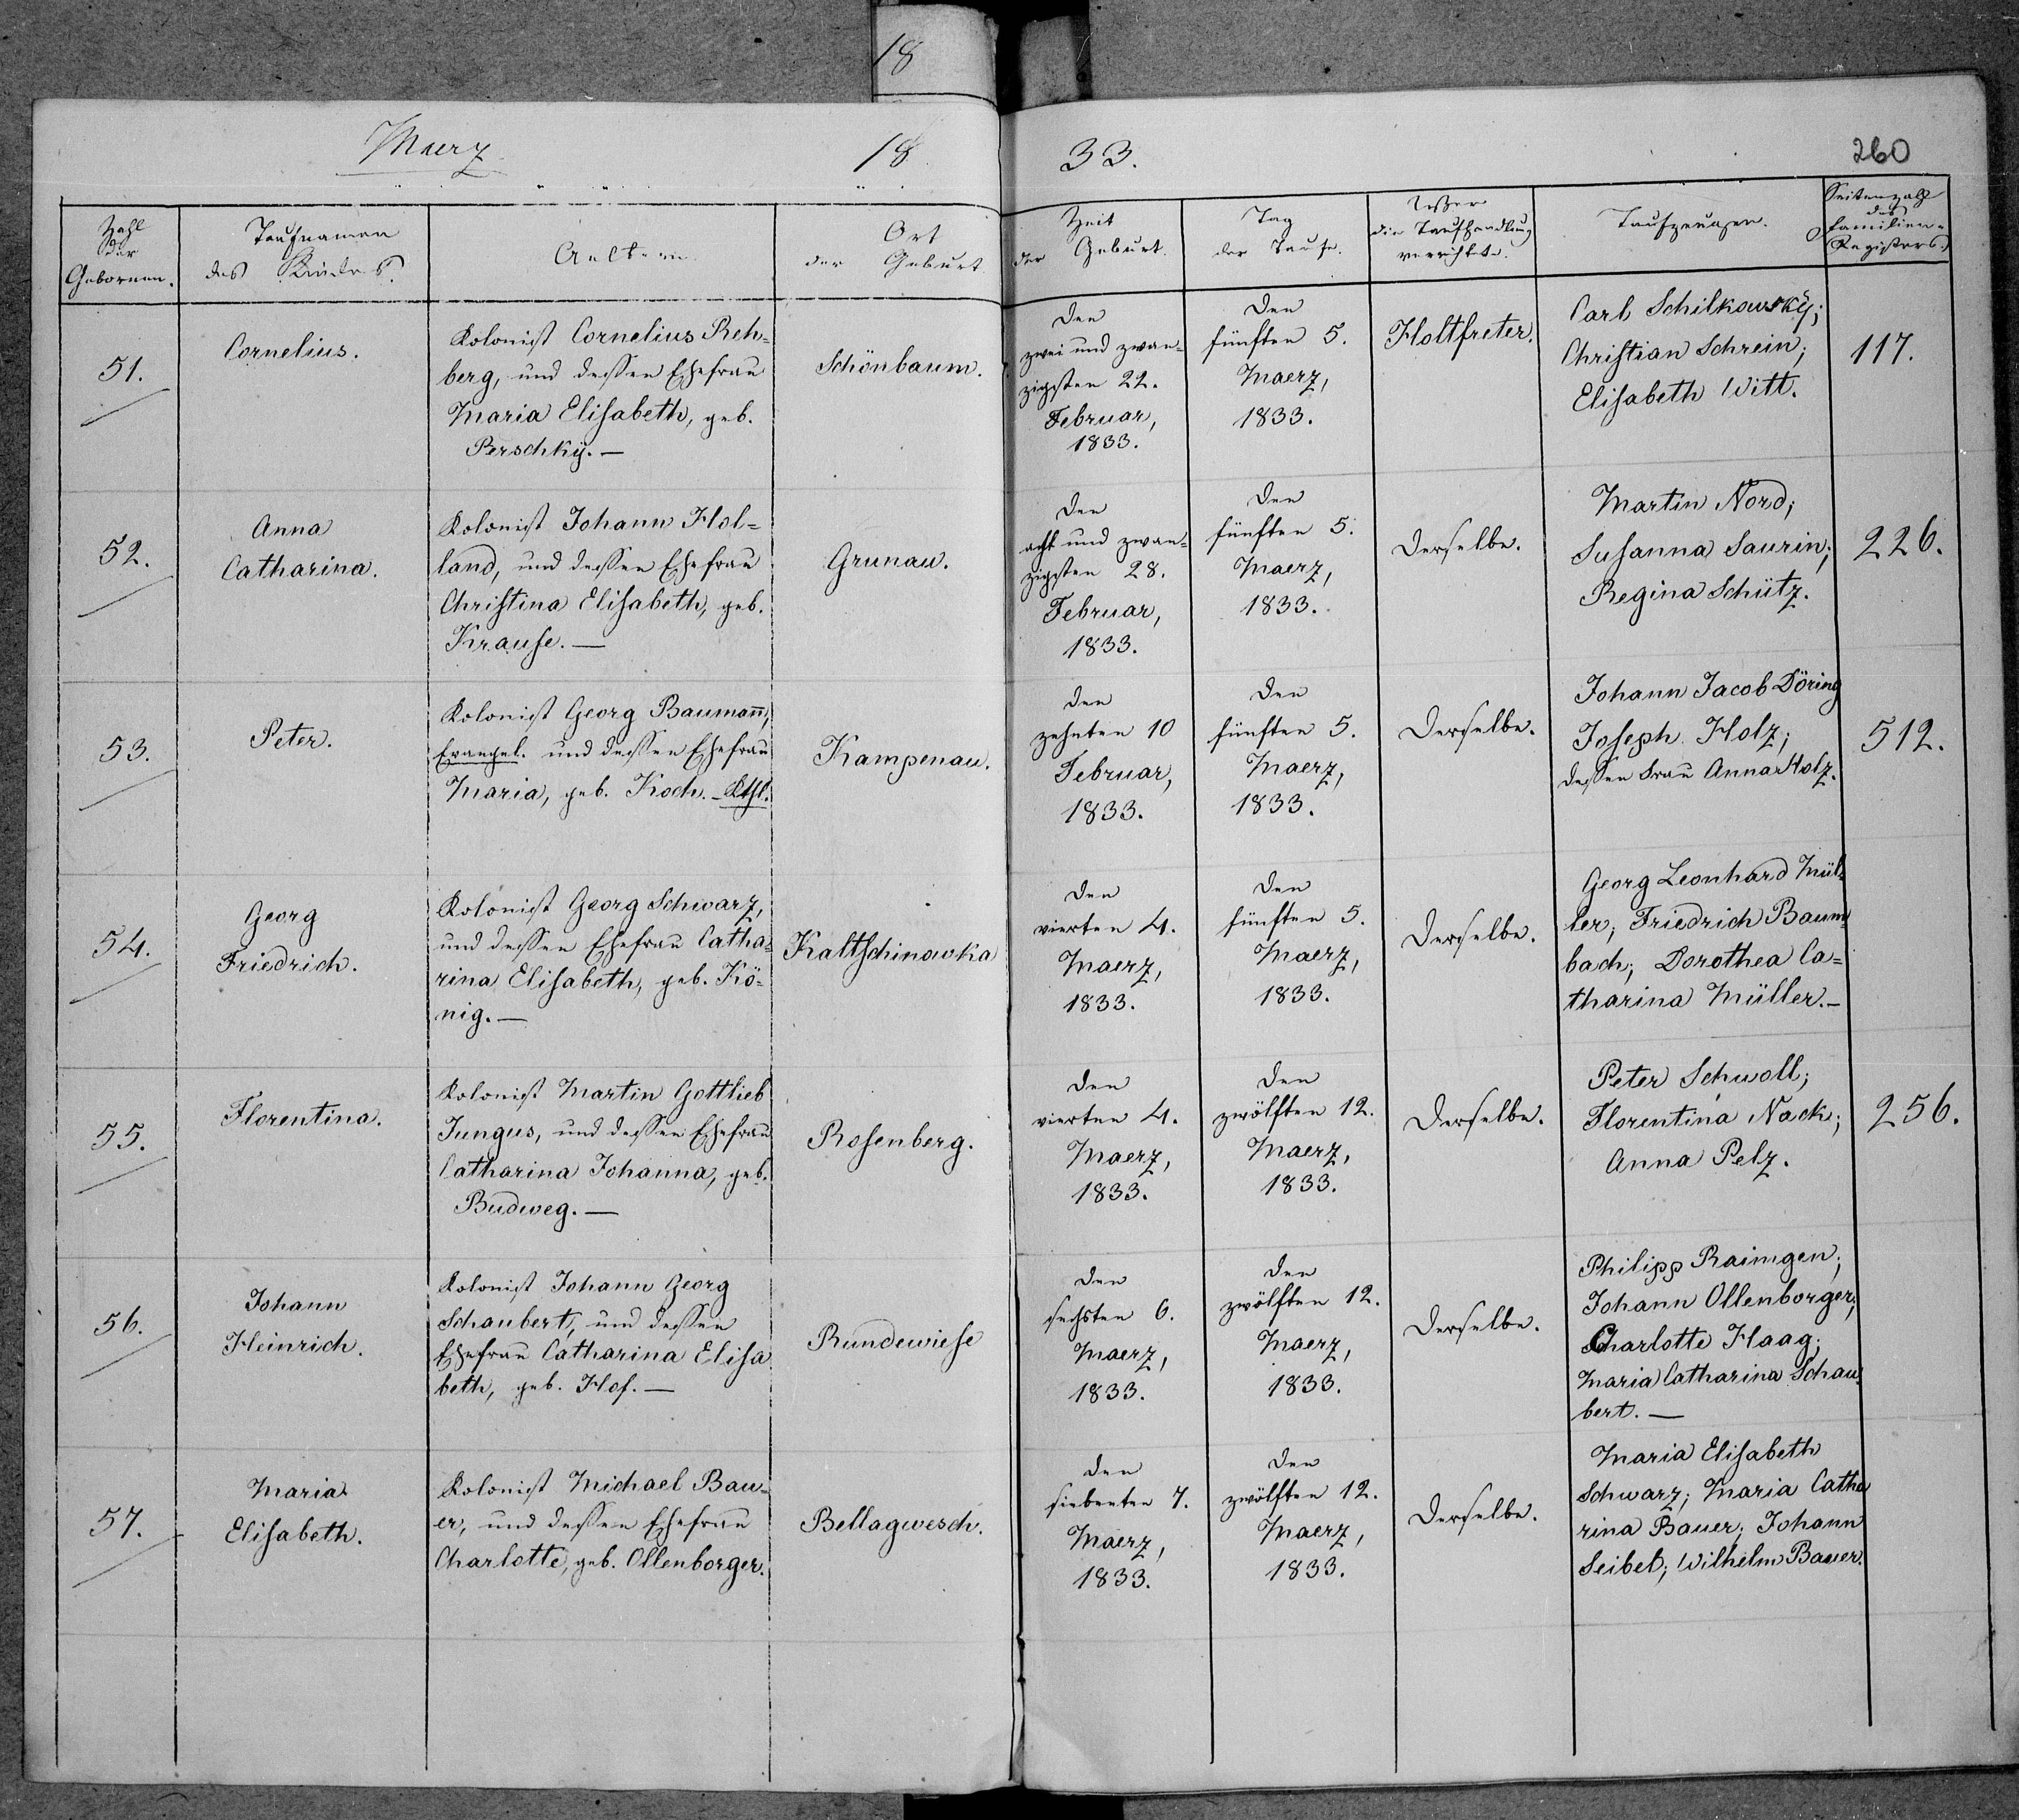 18
Maerz
18
33.
260
Zahl
der
Gebornen.
Taufnamen
des Kindes.
Aeltern
Ort
der Geburt
Zeit
der Geburt.
Tag
der Taufe.
Wer
die Taufhandlung
verrichtete.
Taufzeugen.
Seitenzahl
des
Familien-
Registers.
51.
Cornelius.
Kolonist Cornelius Reh=
berg, und dessen Ehefrau
Maria Elisabeth, geb.
Perschky. —
Schönbaum.
Den
zwei und zwan=
zigsten 22.
Februar,
1833.
Den
fünften 5.
Maerz,
1833.
Holtfreter.
Carl Schilkowsky;
Christian Schrein;
Elisabeth Witt.
117.
52.
Anna
Catharina.
Kolonist Johann Hol=
land, und dessen Ehefrau
Christina Elisabeth, geb.
Krause. —
Grunau.
Den
acht und zwan=
zigsten 28.
Februar,
1833.
Den
fünften 5.
Maerz,
1833.
Derselbe.
Martin Nord;
Susanna Saurin;
Regina Schütz.
226.
53.
Peter.
Kolonist Georg Baumann,
Evangel. und dessen Ehefrau
Maria, geb. Koch. – Kthl.
Kampenau.
Den
zehnten 10
Februar,
1833.
Den
fünften 5.
Maerz,
1833.
Derselbe.
Johann Jacob Döring
Joseph Holz;
dessen Frau Anna Holz.
512.
54.
Georg
Friedrich.
Kolonist Georg Schwarz,
und dessen Ehefrau Catha=
rina Elisabeth, geb. Kö=
nig. —
Kaltschinowka
Den
vierten 4.
Maerz,
1833.
Den
fünften 5.
Maerz,
1833.
Derselbe.
Georg Leonhard Mül=
ler; Friedrich Baum=
bach; Dorothea Ca=
tharina Müller. –
55.
Florentina.
Kolonist Martin Gottlieb
Jungus, und dessen Ehefrau
Catharina Johanna, geb.
Budweg. —
Rosenberg.
Den
vierten 4.
Maerz,
1833.
Den
zwölften 12.
Maerz,
1833.
Derselbe.
Peter Schwoll;
Florentina Nack;
Anna Pelz.
256.
56.
Johann
Heinrich.
Kolonist Johann Georg
Schaubert, und dessen
Ehefrau Catharina Elisa
beth, geb. Hof. —
Rundewiese
Den
sechsten 6.
Maerz,
1833.
Den
zwölften 12.
Maerz,
1833.
Derselbe.
Philipp Raimgen;
Johann Ollenborger;
Charlotte Haag;
Maria Catharina Schau=
bert. —
57.
Maria
Elisabeth.
Kolonist Michael Bau=
er, und dessen Ehefrau
Charlotte, geb. Ollenborger.
Bellagwesch.
Den
siebenten 7.
Maerz,
1833.
Den
zwölften 12.
Maerz,
1833.
Derselbe.
Maria Elisabeth
Schwarz; Maria Catha
rina Bauer; Johann
Seibel; Wilhelm Bauer.